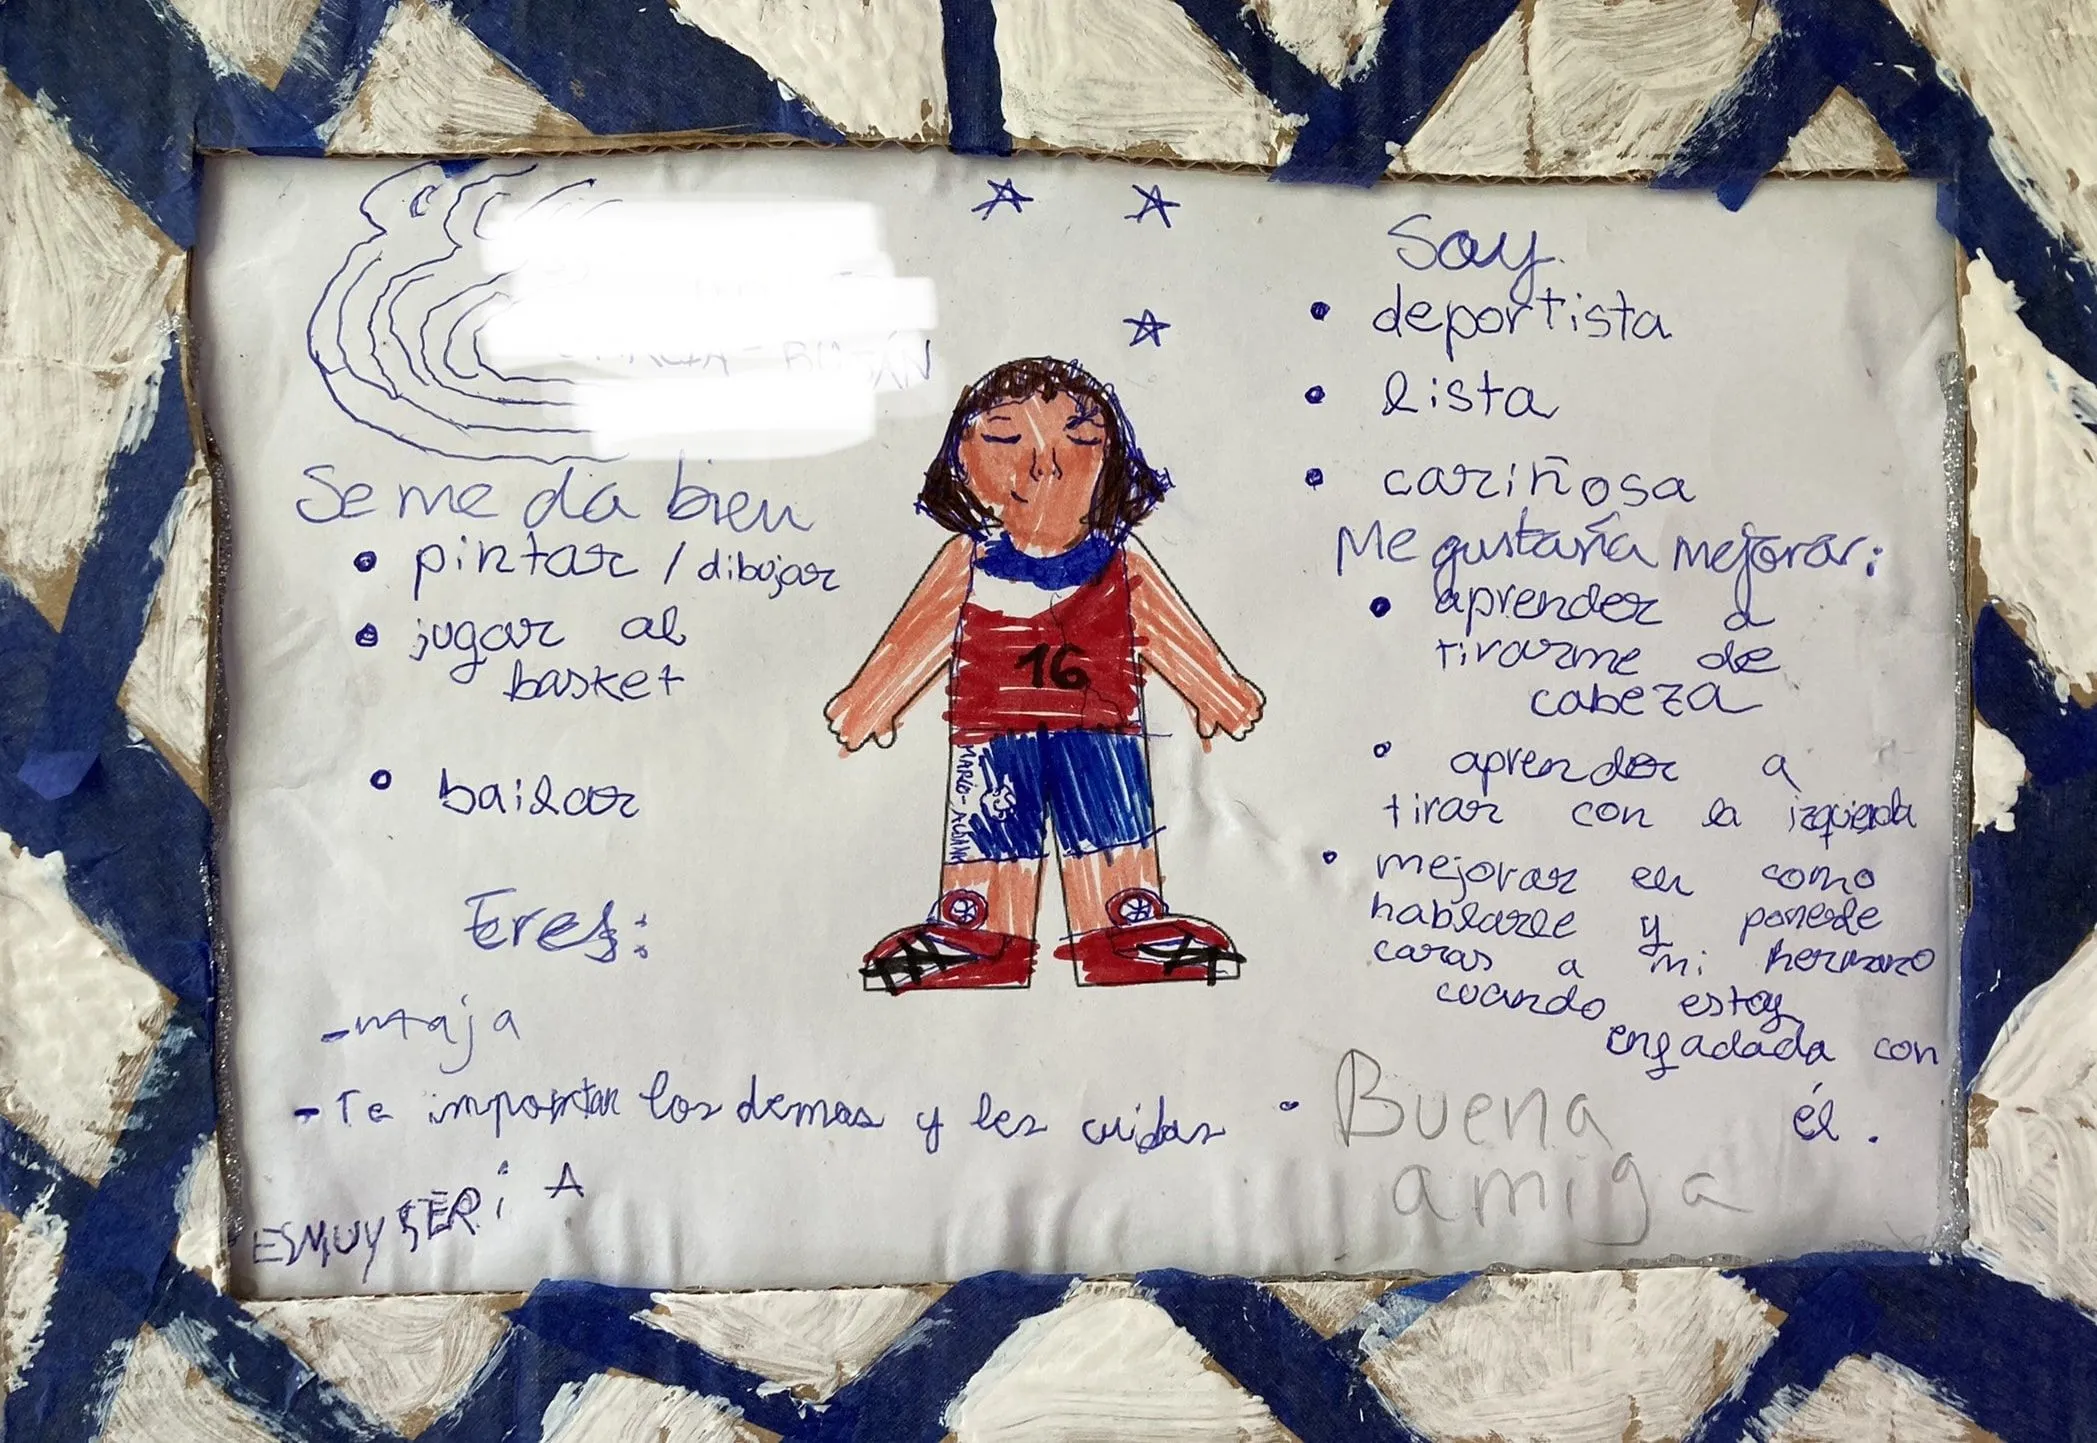 Se me da bien
• pintar / dibujar
• jugar al
basket
• bailar
Eres:
-maja
-Te importan los demas y les cuidas
ES MUY SERiA
16
Soy
• deportista
• lista
• cariñosa
Me gustaría mejorar:
• aprender a
tirarme de
cabeza
• aprender a
tirar con la izquierda
• mejorar en como
hablarle y ponerle
caras a mi hermano
cuando estoy
enfadada con
él.
• Buena
amiga